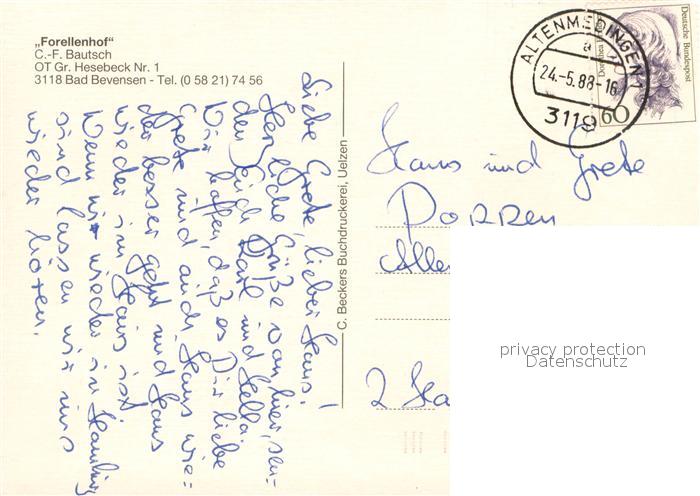 „Forellenhof"
C.-F. Bautsch
OT Gr. Hesebeck Nr. 1
3118 Bad Bevensen - Tel. (0 58 21) 74 56
Liebe Grete, lieber Hans!
Herzliche Grüße von hier, sen-
den Euch Karl und Hella.
Wir hoffen, daß es Dir liebe
Grete und auch Hans wie=
der besser geht und Hans
wieder im Haus ist.
Wenn wir wieder in Hamburg
sind lassen wir uns
wieder hören.
C. Beckers Buchdruckerei, Uelzen
ALTENMEDINGEN 1
a
24.-5.88-16
3119
Deutsche Bundespost
Dorothea
60
Hans und Grete
Alle
2 Ha
privacy protection
Datenschutz